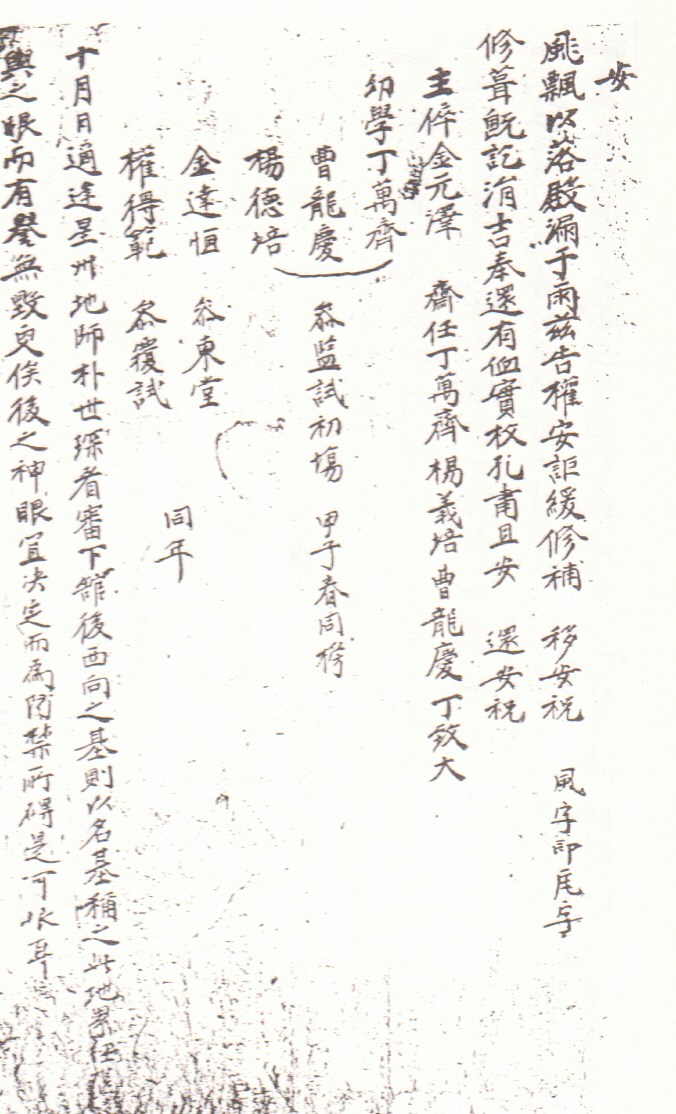 安
颷飄以落殿漏于雨玆告權安詎緩修補 移安祝 風字卽瓦字
修葺旣訖涓吉奉還有侐實枚孔肅且安 還安祝
主倅金元澤 齋任丁萬齊 楊義培 曹龍慶 丁致大
幼學丁萬齊
曹龍慶 叅監試初場 甲子春同榜
楊德培
金達恒 叅東堂
同年
權得範 叅覆試
十月日適逢星州地師朴世琛者審下舘後西向之基則以名基稱之此地眾
輿之眼而有譽無毁更俟後之神眼宜決定而爲防禁所碍是可恨耳